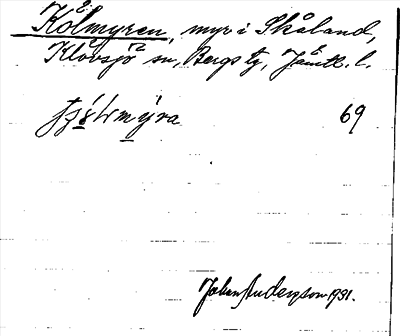 Kölmyren, myr i Skåland,
Klövsjö sn, Bergs tg, Jämtl. l.
69
Johan Anderzson 1931.